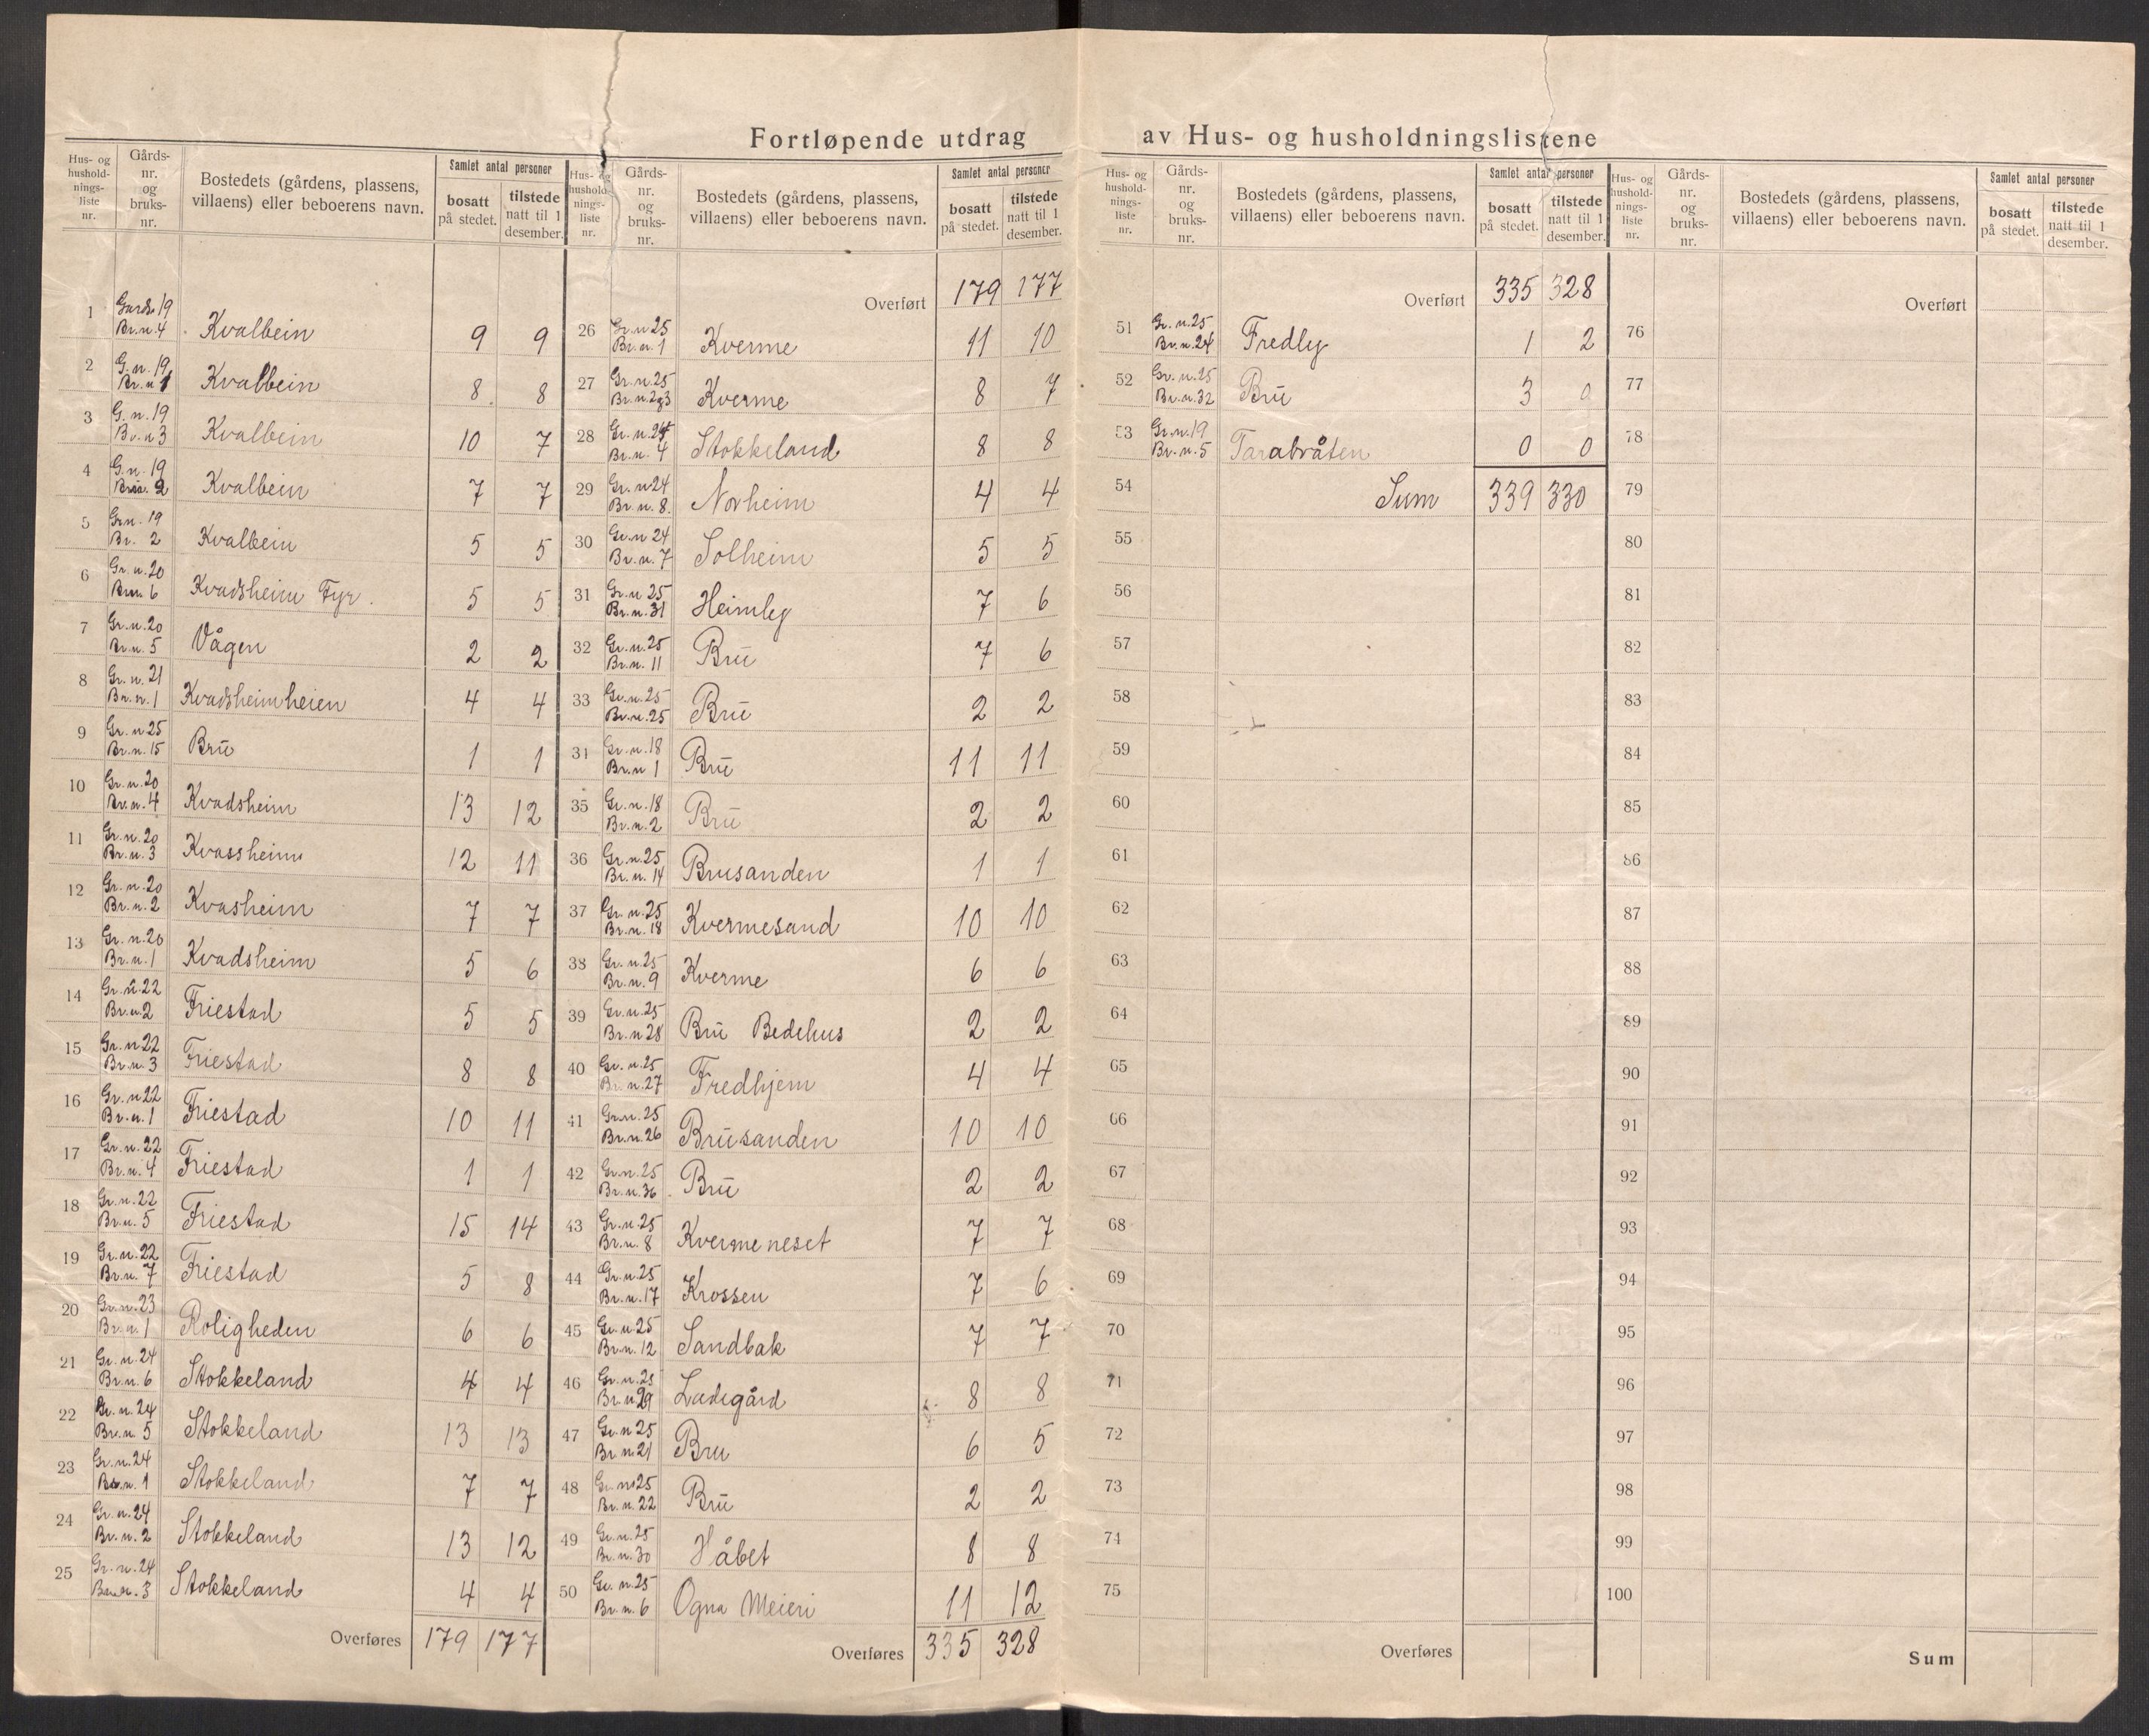 Fortløpende utdrag av Hus- og husholdningslistene
Hus- og husholdnings-liste nr. | Gårds-nr. og bruks-nr. | Bostedets (gårdens, plassens, villaens) eller beboerens navn. | Samlet antal personer | bosatt på stedet. | tilstede natt til 1 desember.
1 Gards 19 Br.n.4 Kvalbein 9 9
2 G.n.19 Br.n.1 Kvalbein 8 8
3 G.n.19 Br.n.3 Kvalbein 10 7
4 G.n.19 Br.n.2 Kvalbein 7 7
5 Gr.n.19 Br. 2 Kvalbein 5 5
6 Gr.n.20 Br.n.6 Kvadsheim Fyr. 5 5
7 Gr.n.20 Br.n.5 Vågen 2 2
8 Gr.n.21 Br.n.1 Kvadsheimheien 4 4
9 Gr.n.25 Br.n.15 Brū 1 1
10 Gr.n.20 Br.n.4 Kvadsheim 13 12
11 Gr.n.20 Br.n.3 Kvassheim 12 11
12 Gr.n.20 Br.n.2 Kvasheim 7 7
13 Gr.n.20 Br.n.1 Kvadsheim 5 6
14 Gr.n.22 Br.n.2 Friestad 5 5
15 Gr.n.22 Br.n.3 Friestad 8 8
16 Gr.n.22 Br.n.1 Friestad 10 11
17 Gr.n.22 Br.n.4 Friestad 1 1
18 Gr.n.22 Br.n.5 Friestad 15 14
19 Gr.n.22 Br.n.7 Friestad 5 8
20 Gr.n.23 Br.n.1 Roligheden 6 6
21 Gr.n.24 Br.n.6 Stokkeland 4 4
22 Gr.n.24 Br.n.5 Stokkeland 13 13
23 Gr.n.24 Br.n.1 Stokkeland 7 7
24 Gr.n.24 Br.n.2 Stokkeland 13 12
25 Gr.n.24 Br.n.3 Stokkeland 4 4
Overføres 179 177
Hus- og husholdnings-liste nr. | Gårds-nr. og bruks-nr. | Bostedets (gårdens, plassens, villaens) eller beboerens navn. | Samlet antal personer | bosatt på stedet. | tilstede natt til 1 desember.
Overført 179 177
26 Gr.n.25 Br.n.1 Kverme 11 10
27 Gr.n.25 Br.n.2g3 Kverme 8 7
28 Gr.n.24 Br.n.4 Stokkeland 8 8
29 Gr.n.24 Br.n.8. Norheim 4 4
30 Gr.n.24 Br.n.7 Solheim 5 5
31 Gr.n.25 Br.n.31 Heimleg 7 6
32 Gr.n.25 Br.n.11 Brū 7 6
33 Gr.n.25 Br.n.25 Brū 2 2
34 Gr.n.18 Br.n.1 Brū 11 11
35 Gr.n.18 Br.n.2 Brū 2 2
36 Gr.n.25 Br.n.14 Brusanden 1 1
37 Gr.n.25 Br.n.18 Kvermesand 10 10
38 Gr.n.25 Br.n.9 Kverme 6 6
39 Gr.n.25 Br.n.28 Brū Bedehus 2 2
40 Gr.n.25 Br.n.27 Fredhjem 4 4
41 Gr.n.25 Br.n.26 Brūsanden 10 10
42 Gr.n.25 Br.n.36. Brū 2 2
43 Gr.n.25 Br.n.8 Kvermeneset 7 7
44 Gr.n.25 Br.n.17 Krossen 7 6
45 Gr.n.25 Br.n.12 Sandbak 7 7
46 Gr.n.25 Br.n.29 Ladegård 8 8
47 Gr.n.25 Br.n.21 Bru 6 5
48 Gr.n.25 Br.n.22 Brū 2 2
49 Gr.n.25 Br.n.30 Håbet 8 8
50 Gr.n.25 Br.n.6 Ogna Meieri 11 12
Overføres 335 328
Hus- og husholdnings-liste nr. | Gårds-nr. og bruks-nr. | Bostedets (gårdens, plassens, villaens) eller beboerens navn. | Samlet antal personer | bosatt på stedet. | tilstede natt til 1 desember.
Overført 335 328
51 Gr.n.25 Br.n.24 Fredly 1 2
52 Gr.n.25 Br.n.32 Brū 3 0
53 Gr.n.19 Br.n.5 Tarabråten 0 0
54 Sum 339 330
55
56
57
58
59
60
61
62
63
64
65
66
67
68
69
70
71
72
73
74
75
Overføres
Hus- og husholdnings-liste nr. | Gårds-nr. og bruks-nr. | Bostedets (gårdens, plassens, villaens) eller beboerens navn. | Samlet antal personer | bosatt på stedet. | tilstede natt til 1 desember.
Overført
76
77
78
79
80
81
82
83
84
85
86
87
88
89
90
91
92
93
94
95
96
97
98
99
100
Sum